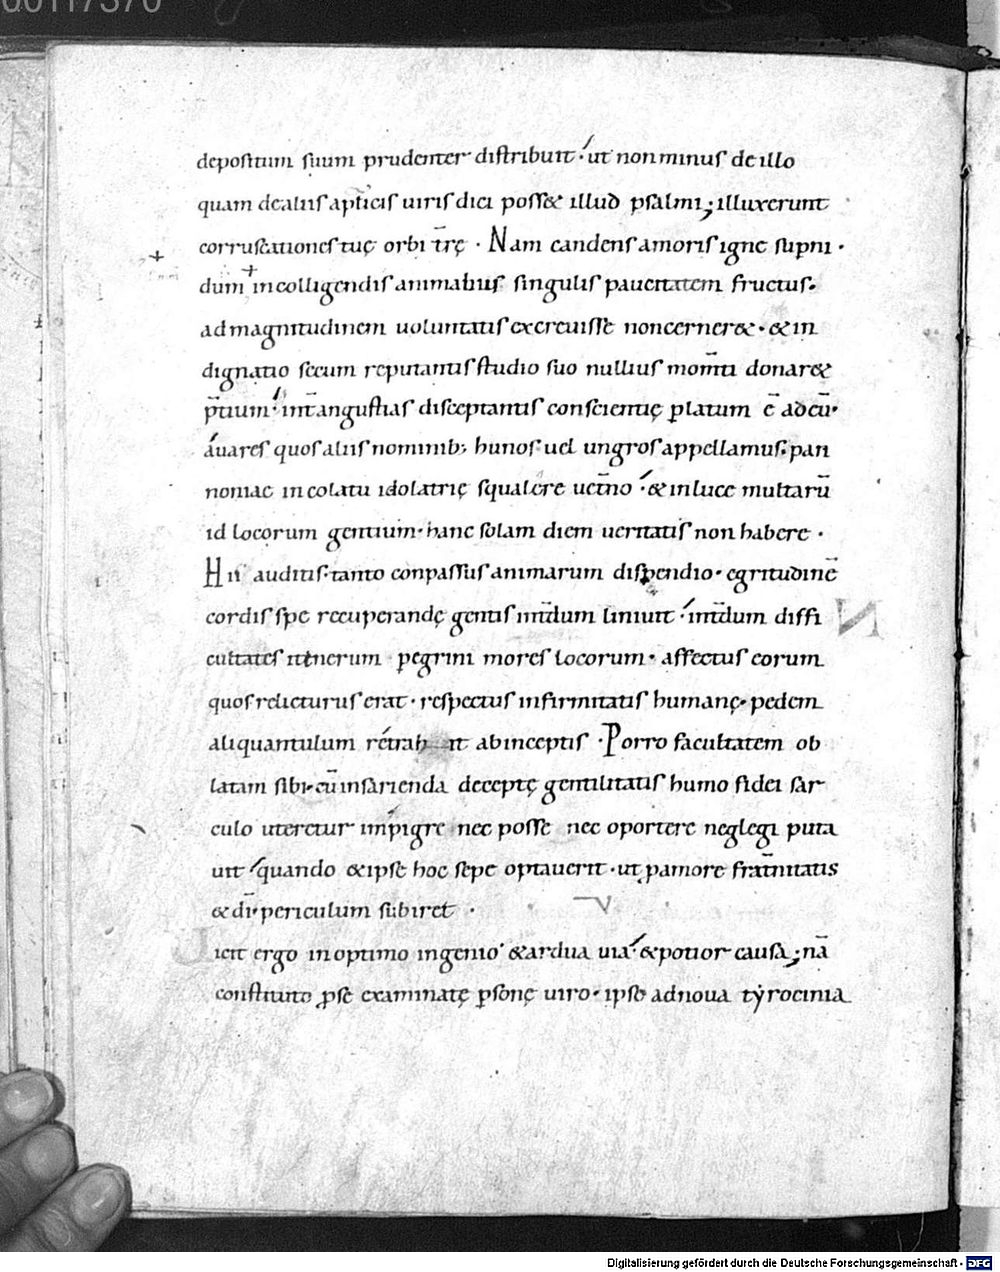 00117370
depositum suum prudenter distribuit · ut non minus de illo
quam de aliis apl̄icis uiris dici posse& illud psalmi; illuxerunt
corruscationes tuę orbi tr̄ę · Nam candens amoris igne sup̄ni ·
dum in colligendis animabus singulis pauertatem fructus ·
ad magnitudinem uoluntatis excreuisse non cerner& · & in
dignatio secum reputantis studio suo nullius mom̄ti donar&
p̄tium · int̄ angustias disceptantis conscientię platum ē ad eū ·
auares quos aliis nominib; hunos uel ungros appellamus · pan
noniae incolatu idolatrię squalere uet̄no · & in luce multarū
id locorum gentium · hanc solam diem ueritatis non habere ·
Hiˢ auditis · tanto conpassus animarum dispendio · egritudinē
cordis spe recuperandę gentis int̄dum liniuit · int̄dum diffi
cultates itinerum pegrini mores locorum · affectus eorum
quos relicturus erat · respectus infirmitatis humanę · pedem
aliquantulum retrah it ab inceptis · Porro facultatem ob
latam sibi · cū insarienda deceptę gentilitatis humo fidei sar
culo uteretur impigre nec posse nec oportere neglegi puta
uit · quando & ipse hoc sepe optauerit · ut p amore frat̄nitatis
& dī · periculum subiret ·
V
icit ergo in optimo ingenio · & ardua uia · & potior causa; nā
constituto p se examinatę psonę uiro · ipse ad noua tyrocinia
N
Digitalisierung gefördert durch die Deutsche Forschungsgemeinschaft - DFG